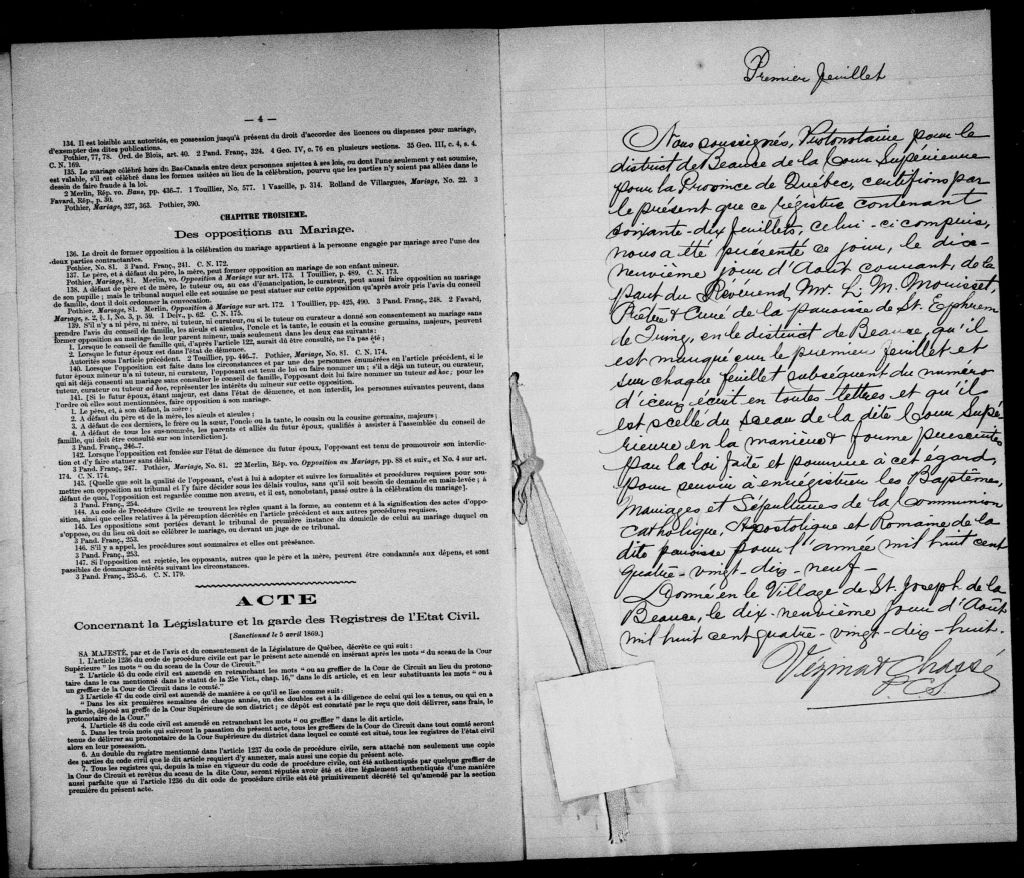 — 4 —
134. Il est loisible aux autorités, en possession jusqu'à présent du droit d'accorder des licences ou dispenses pour mariage,
d'exempter des dites publications.
Pothier, 77, 78. Ord. de Blois, art. 40. 2 Pand. Franç., 324. 4 Geo. IV, c. 76 en plusieurs sections. 35 Geo. III, c. 4, s. 4.
C. N. 169.
135. Le mariage célébré hors du Bas-Canada entre deux personnes sujettes à ses lois, ou dont l'une seulement y est soumise,
est valable, s'il est célébré dans les formes usitées au lieu de la célébration, pourvu que les parties n'y soient pas allées dans le
dessin de faire fraude à la loi.
2 Merlin, Rép. vo. Bans, pp. 436-7. 1 Touillier, No. 577. 1 Vazeille, p. 314. Rolland de Villargues, Mariage, No. 22. 3
Favard, Rép., p. 30.
Pothier, Mariage, 327, 363. Pothier, 390.
CHAPITRE TROISIEME.
Des oppositions au Mariage.
136. Le droit de former opposition à la célébration du mariage appartient à la personne engagée par mariage avec l'une des
deux parties contractantes.
Pothier, No. 81. 3 Pand. Franç., 241. C. N. 172.
137. Le père, et à défaut du père, la mère, peut former opposition au mariage de son enfant mineur.
Pothier, Mariage, 81. Merlin, vo. Opposition à Mariage sur art. 173. 1 Touillier, p. 489. C. N. 173.
138. A défaut de père et de mère, le tuteur ou, au cas d'émancipation, le curateur, peut aussi faire opposition au mariage
de son pupille ; mais le tribunal auquel elle est soumise ne peut statuer sur cette opposition qu'après avoir pris l'avis du conseil
de famille, dont il doit ordonner la convocation.
Pothier, Mariage, 81. Merlin, Opposition à Mariage sur art. 172. 1 Touillier, pp. 425, 490. 3 Pand. Franç., 248. 2 Favard,
Mariage, s. 2, § 1, No. 3, p. 59. 1 Delv., p. 62. C. N. 175.
139. S'il n'y a ni père, ni mère, ni tuteur, ni curateur, ou si le tuteur ou curateur a donné son consentement au mariage sans
prendre l'avis du conseil de famille, les aïeuls et aïeules, l'oncle et la tante, le cousin et la cousine germains, majeurs, peuvent
former opposition au mariage de leur parent mineur, mais seulement dans les deux cas suivants :
1. Lorsque le conseil de famille qui, d'après l'article 122, aurait dû être consulté, ne l'a pas été ;
2. Lorsque le futur époux est dans l'état de démence.
Autorités sous l'article précédent. 2 Touillier, pp. 446-7. Pothier, Mariage, No. 81. C. N. 174.
140. Lorsque l'opposition est faite dans les circonstances et par une des personnes énumérées en l'article précédent, si le
futur époux mineur n'a ni tuteur, ni curateur, l'opposant est tenu de lui en faire nommer un ; s'il a déjà un tuteur, ou curateur,
qui ait déjà consenti au mariage sans consulter le conseil de famille, l'opposant doit lui faire nommer un tuteur ad hoc ; pour les
tuteur, curateur ou tuteur ad hoc, représenter les intérêts du mineur sur cette opposition.
141. [Si le futur époux, étant majeur, est dans l'état de démence, et non interdit, les personnes suivantes peuvent, dans
l'ordre où elles sont mentionnées, faire opposition à son mariage.
1. Le père, et, à son défaut, la mère ;
2. A défaut du père et de la mère, les aïeuls et aïeules ;
3. A défaut de ces derniers, le frère ou la sœur, l'oncle ou la tante, le cousin ou la cousine germains, majeurs ;
4. A défaut de tous les sus-nommés, les parents et alliés du futur époux, qualifiés à assister à l'assemblée du conseil de
famille, qui doit être consulté sur son interdiction].
3 Pand. Franç., 246-7.
142. Lorsque l'opposition est fondée sur l'état de démence du futur époux, l'opposant est tenu de promouvoir son interdic-
tion et d'y faire statuer sans délai.
3 Pand. Franç., 247. Pothier, Mariage, No. 81. 22 Merlin, Rép. vo. Opposition au Mariage, pp. 88 et suiv., et No. 4 sur art.
174. C. N. 174.
143. [Quelle que soit la qualité de l'opposant, c'est à lui à adopter et suivre les formalités et procédures requises pour sou-
mettre son opposition au tribunal et l'y faire décider sous les délais voulus, sans qu'il soit besoin de demande en main-levée ; à
défaut de quoi, l'opposition est regardée comme non avenu, et il est, nonobstant, passé outre à la célébration du mariage].
3 Pand. Franç., 254.
144. Au code de Procédure Civile se trouvent les règles quant à la forme, au contenu et à la signification des actes d'oppo-
sition, ainsi que celles relatives à la péremption décrétée en l'article précédent et aux autres procédures requises.
145. Les oppositions sont portées devant le tribunal de première instance du domicile de celui au mariage duquel on
s'oppose, ou du lieu où doit se célébrer le mariage, ou devant un juge de ce tribunal.
3 Pand. Franç., 253.
146. S'il y a appel, les procédures sont sommaires et elles ont préséance.
3 Pand. Franç., 253.
147. Si l'opposition est rejetée, les opposants, autres que le père et la mère, peuvent être condamnés aux dépens, et sont
passibles de dommages-intérêts suivant les circonstances.
3 Pand. Franç., 255-6. C. N. 179.
ACTE
Concernant la Législature et la garde des Registres de l'Etat Civil.
[Sanctionné le 5 avril 1869.]
SA MAJESTÉ, par et de l'avis et du consentement de la Législature de Québec, décrète ce qui suit :
1. L'article 1236 du code de procédure civile est par le présent acte amendé en insérant après les mots " du sceau de la Cour
Supérieure " les mots " ou du sceau de la Cour de Circuit."
2. L'article 45 du code civil est amendé en retranchant les mots " ou au greffier de la Cour de Circuit au lieu du protono-
taire dans le cas mentionné dans le statut de la 25e Vict., chap. 16," dans le dit article, et en leur substituant les mots " ou à
un greffier de la Cour de Circuit dans le comté."
3 L'article 47 du code civil est amendé de manière à ce qu'il se lise comme suit :
" Dans les six premières semaines de chaque année, un des doubles est à la diligence de celui qui les a tenus, ou qui en a
la garde, déposé au greffe de la Cour Supérieure de son district ; ce dépôt est constaté par le reçu que doit délivrer, sans frais, le
protonotaire de la Cour."
4. L'article 48 du code civil est amendé en retranchant les mots " ou greffier " dans le dit article.
5. Dans les trois mois qui suivront la passation du présent acte, tous les greffiers de la Cour de Circuit dans tout comté seront
tenus de délivrer au protonotaire de la Cour Supérieure du district dans lequel ce comté est situé, tous les registres de l'état civil
alors en leur possession.
6. Au double du registre mentionné dans l'article 1237 du code de procédure civile, sera attaché non seulement une copie
des parties du code civil que le dit article requiert d'y annexer, mais aussi une copie du présent acte.
7. Tous les registres qui, depuis la mise en vigueur du code de procédure civile, ont été authentiqués par quelque greffier de
la Cour de Circuit et revêtus du sceau de la dite Cour, seront réputés avoir été et être légalement authentiqués d'une manière
aussi parfaite que si l'article 1236 du dit code de procédure civile eût été primitivement décrété tel qu'amendé par la section
première du présent acte.
Premier feuillet
Nous soussignés, Protonotaire pour le
district de Beauce de la Cour Supérieure
pour la Province de Québec, certifions par
le présent que ce registre contenant
soixante-dix feuillets, celui-ci compris,
nous a été présenté ce jour, le dix-
neuvième jour d'Août courant, de la
part du Révérend Mr. L. M. Mouisset,
Prêtre & Curé de la paroisse de St. Ephrem
de Tring, en le district de Beauce, qu'il
est marqué sur le premier feuillet et
sur chaque feuillet subséquent du numéro
d'iceux écrit en toutes lettres et qu'il
est scellé du sceau de la dite Cour Supé-
rieure en la manière & forme prescrites
par la loi faite et pourvue à cet égard,
pour servir à enregistrer les Baptêmes,
Mariages et Sépultures de la Communion
Catholique, Apostolique et Romaine de la
dite paroisse pour l'année mil huit cent
quatre-vingt-dix-neuf —
Donné en le Village de St. Joseph de la
Beauce, le dix-neuvième jour d'Août
mil huit cent quatre-vingt-dix-huit.
Vézina & Chassé
P.C.S.